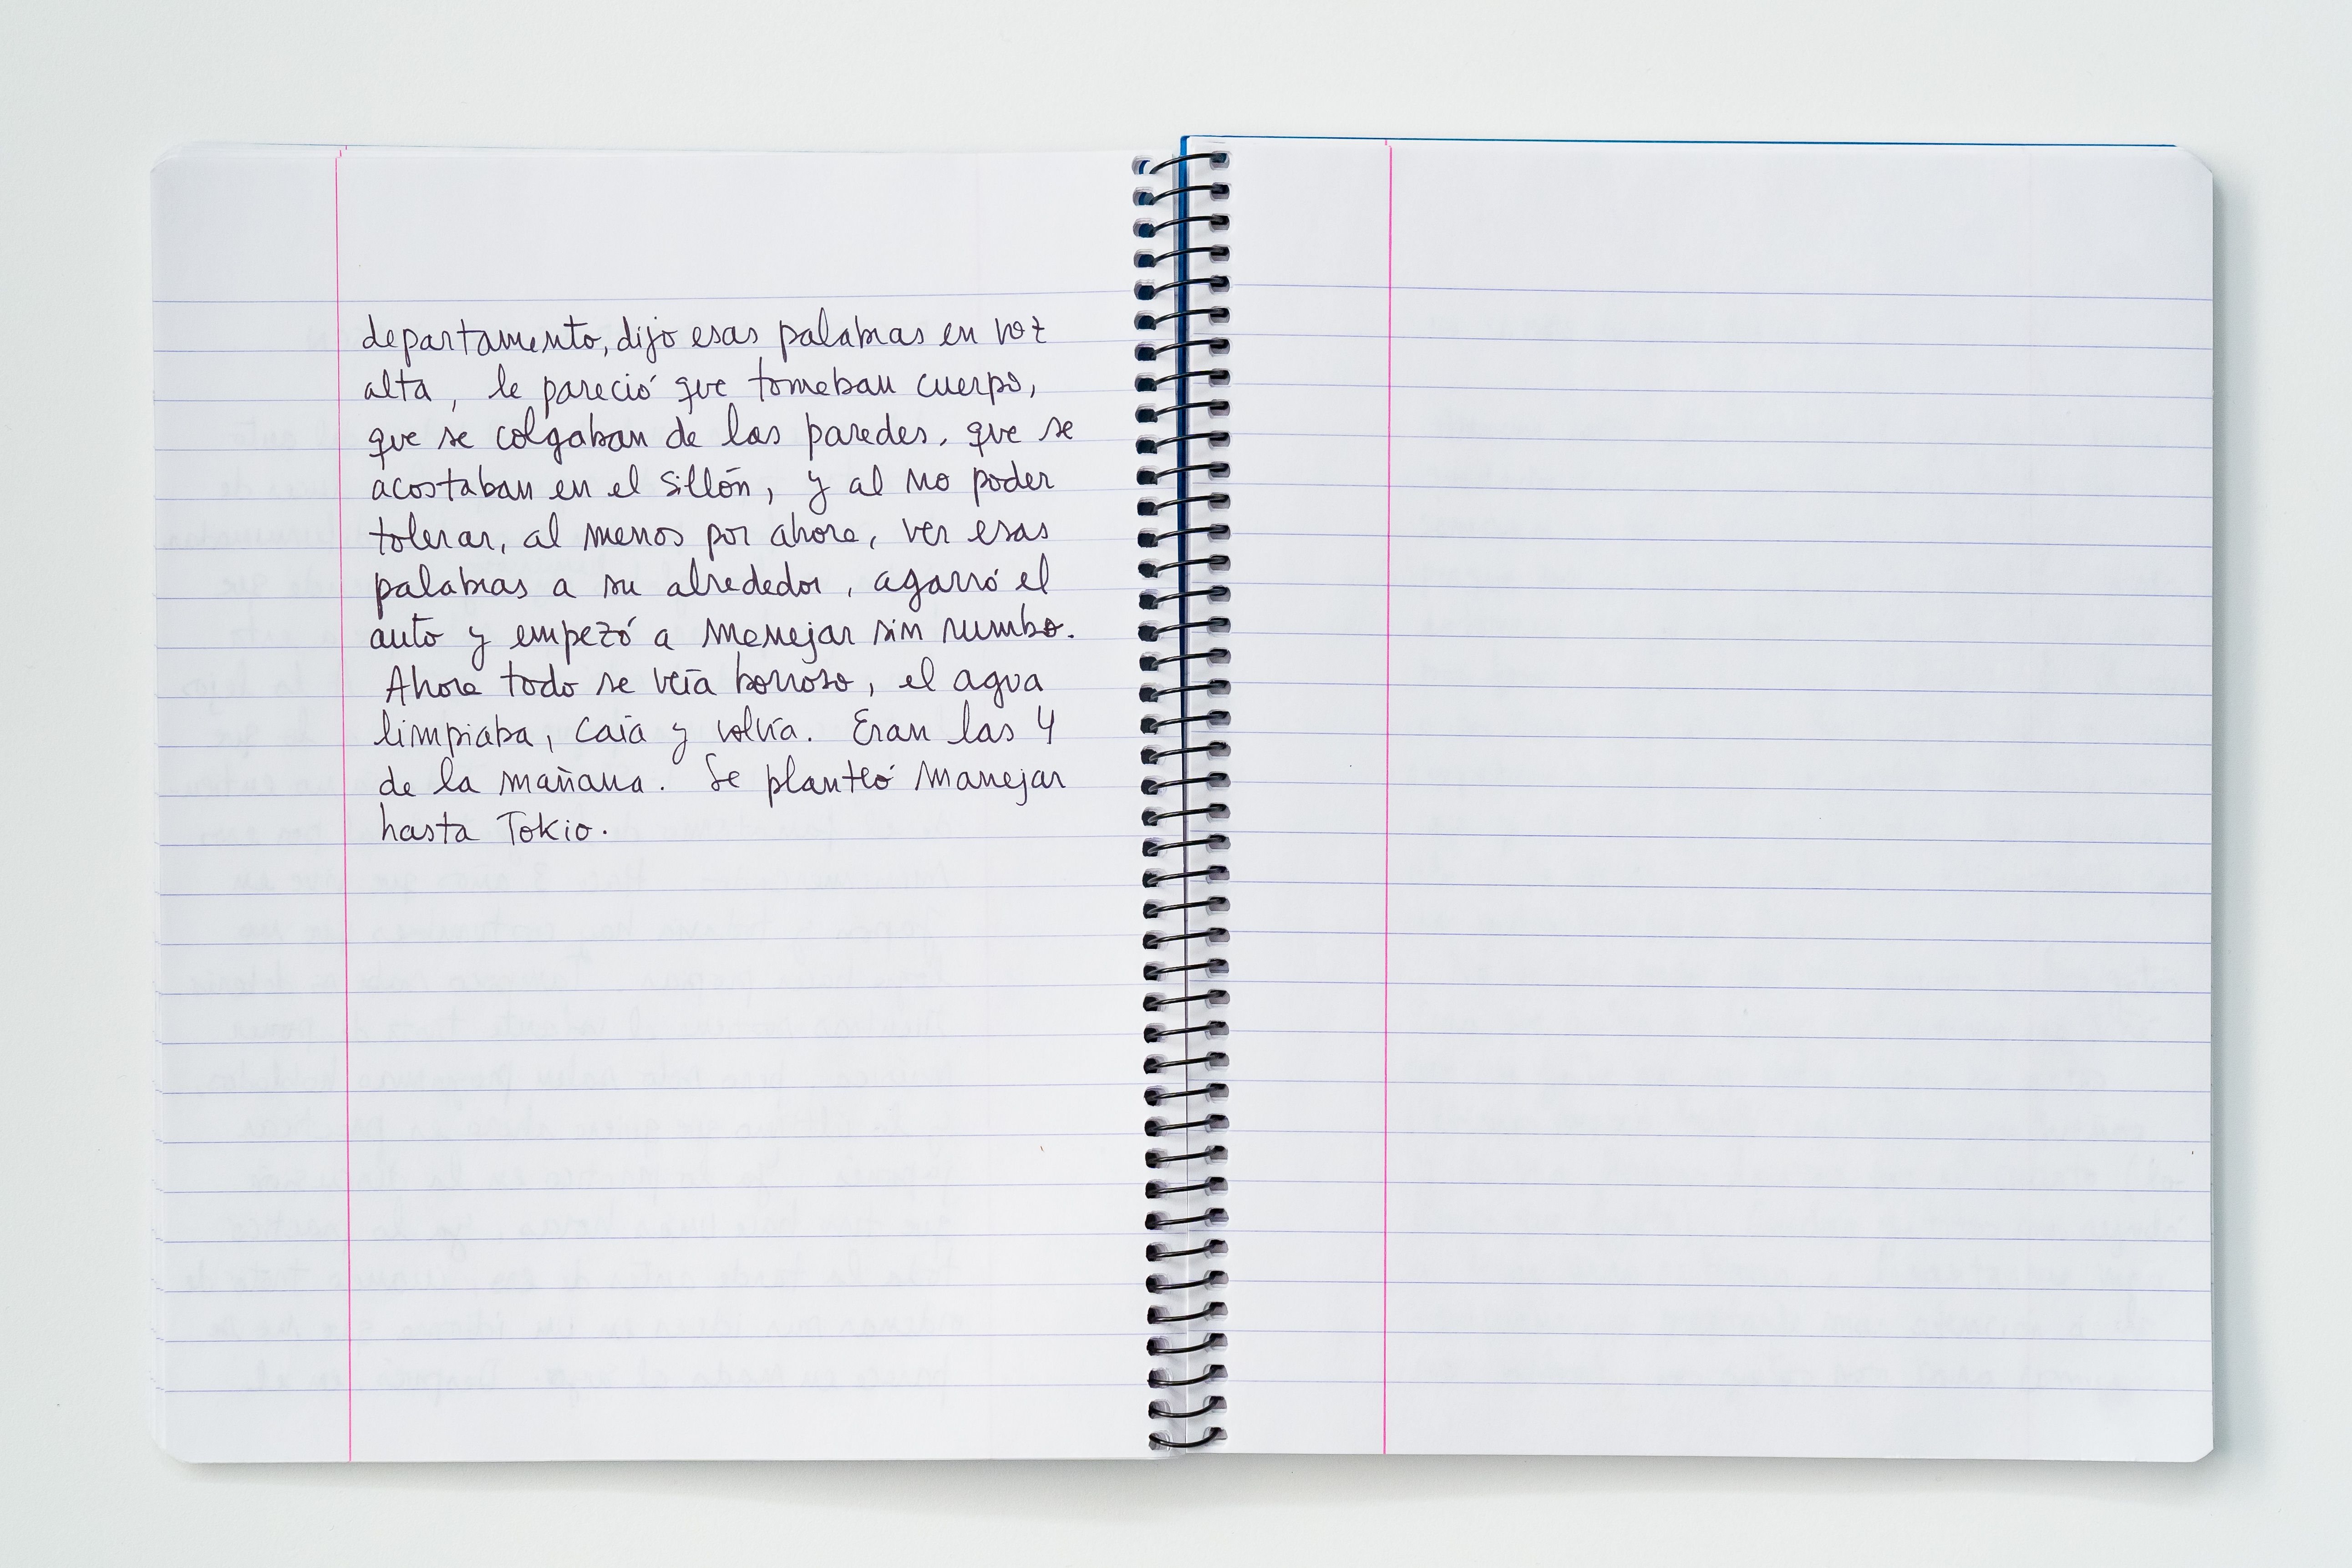 departamento, dijo esas palabras en voz
alta, le pareció que tomaban cuerpo,
que se colgaban de las paredes, que se
acostaban en el sillón, y al no poder
tolerar, al menos por ahora, ver esas
palabras a su alrededor, agarró el
auto y empezó a manejar sin rumbo.
Ahora todo se veía borroso, el agua
limpiaba, caía y volvía. Eran las 4
de la mañana. Se planteó manejar
hasta Tokio.